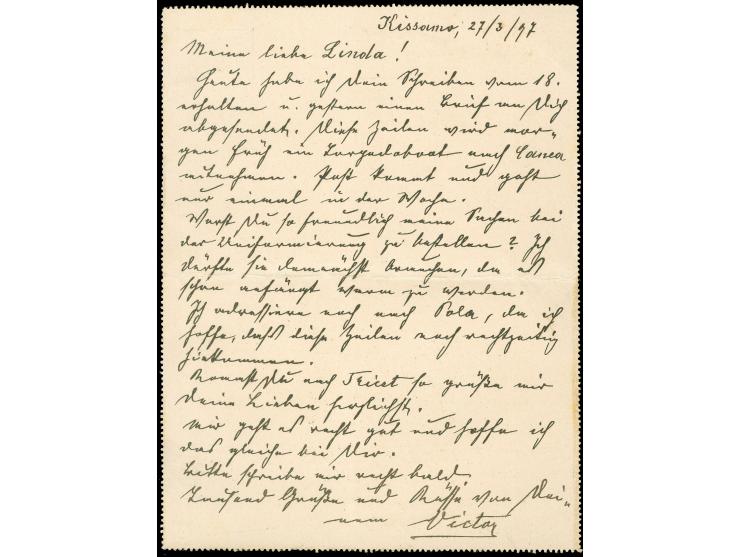 Kissamo, 27/3/97
Meine liebe Linda!
Heute habe ich Dein Schreiben vom 18.
erhalten u. gestern einen Brief an Dich
abgesendet. Diese Zeilen wird mor-
gen früh ein Torpedoboot nach Canea
mitnehmen. Post kommt und geht
nur einmal in der Woche.
Warst Du so freundlich meine Sachen bei
der Uniformierung zu bestellen? Ich
dürfte sie demnächst brauchen, da es
schon anfängt warm zu werden.
Ich adressiere noch nach Pola, da ich
hoffe, daß diese Zeilen noch rechtzeitig
hinkommen.
Kommst Du nach Triest so grüße mir
Deine Lieben herzlichst.
Mir geht es recht gut und hoffe ich
das gleiche bei Dir.
Bitte schreibe mir recht bald.
Tausend Grüße und Küsse von Dei-
nem Victor